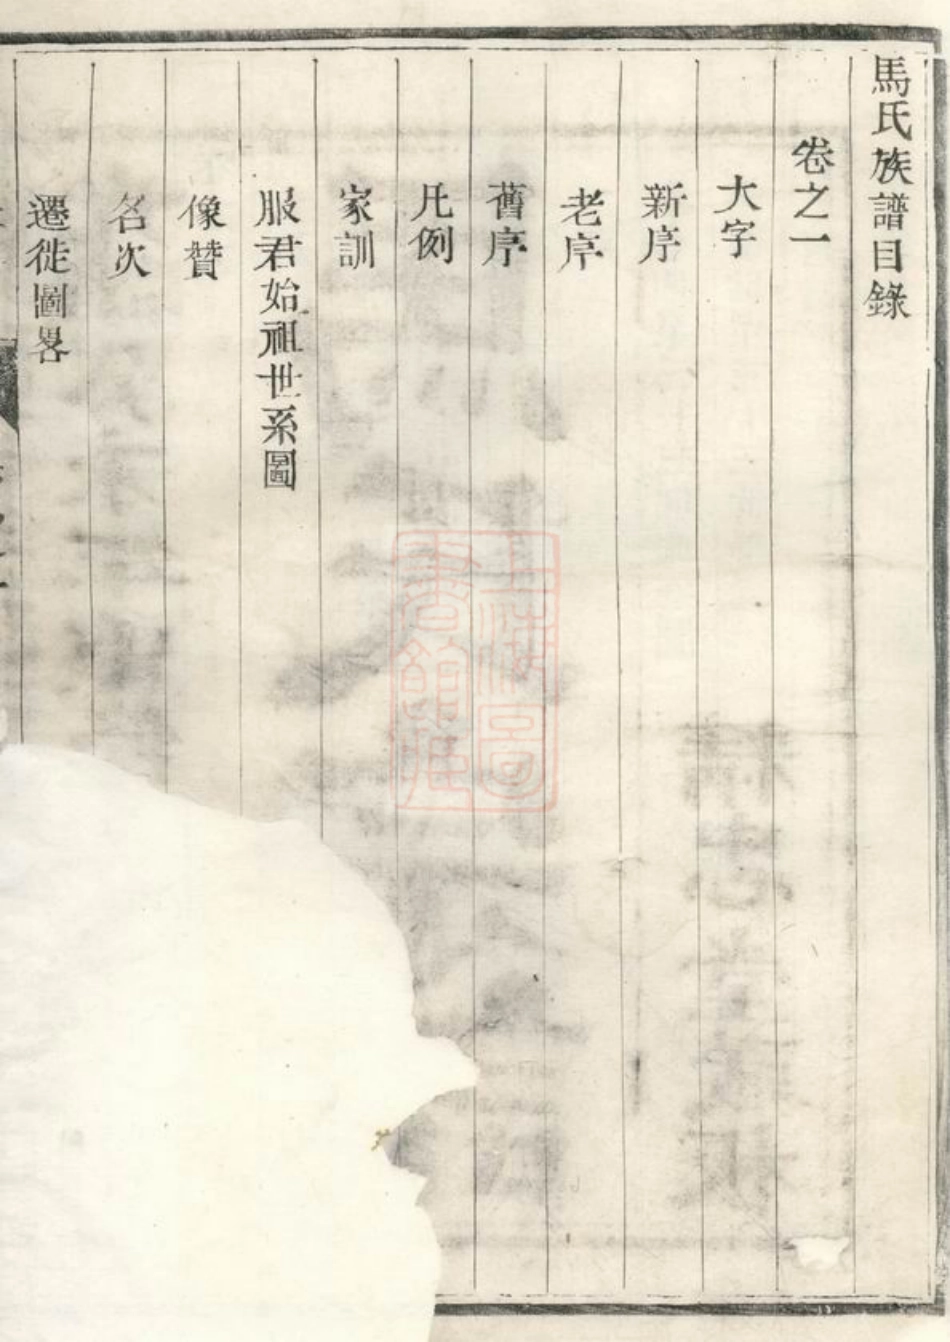 馬氏族譜目錄
卷之一
大字
新序
老序
舊序
凡例
家訓
服君始祖世系圖
像贊
名次
遷徙圖畧
上海圖
書館藏